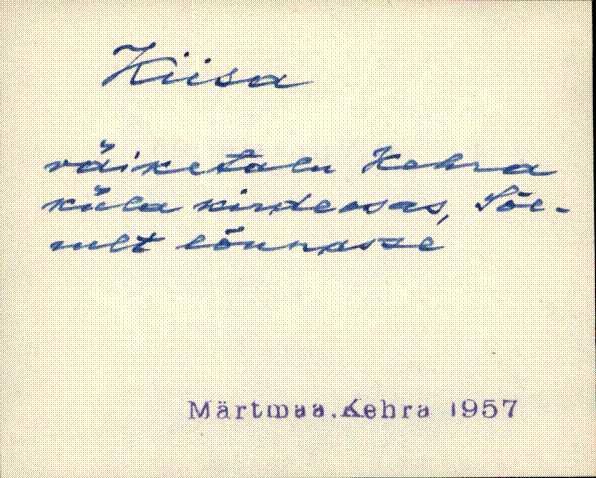 Kiisa
väiketalu Kehra
küla kirdeosas, Sõe-
rult lõunasse
Märtmaa. Kehra 1957